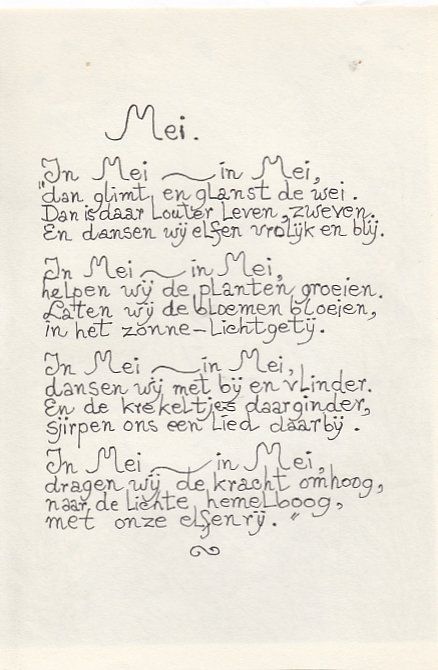 Mei.
In Mei ~ in Mei,
"dan glimt en glanst de wei.
Dan is daar Louter Leven, zweven.
En dansen wij elfen vrolijk en blij.
In Mei ~ in Mei,
helpen wij de planten groeien.
Laten wij de bloemen bloeien,
in het zonne-Lichtgetij.
In Mei ~ in Mei,
dansen wij met bij en vlinder.
En de krekeltjes daarginder,
sjirpen ons een Lied daarbij.
In Mei ~ in Mei,
dragen wij de kracht omhoog,
naar de Lichte hemelboog,
met onze elfenrij."